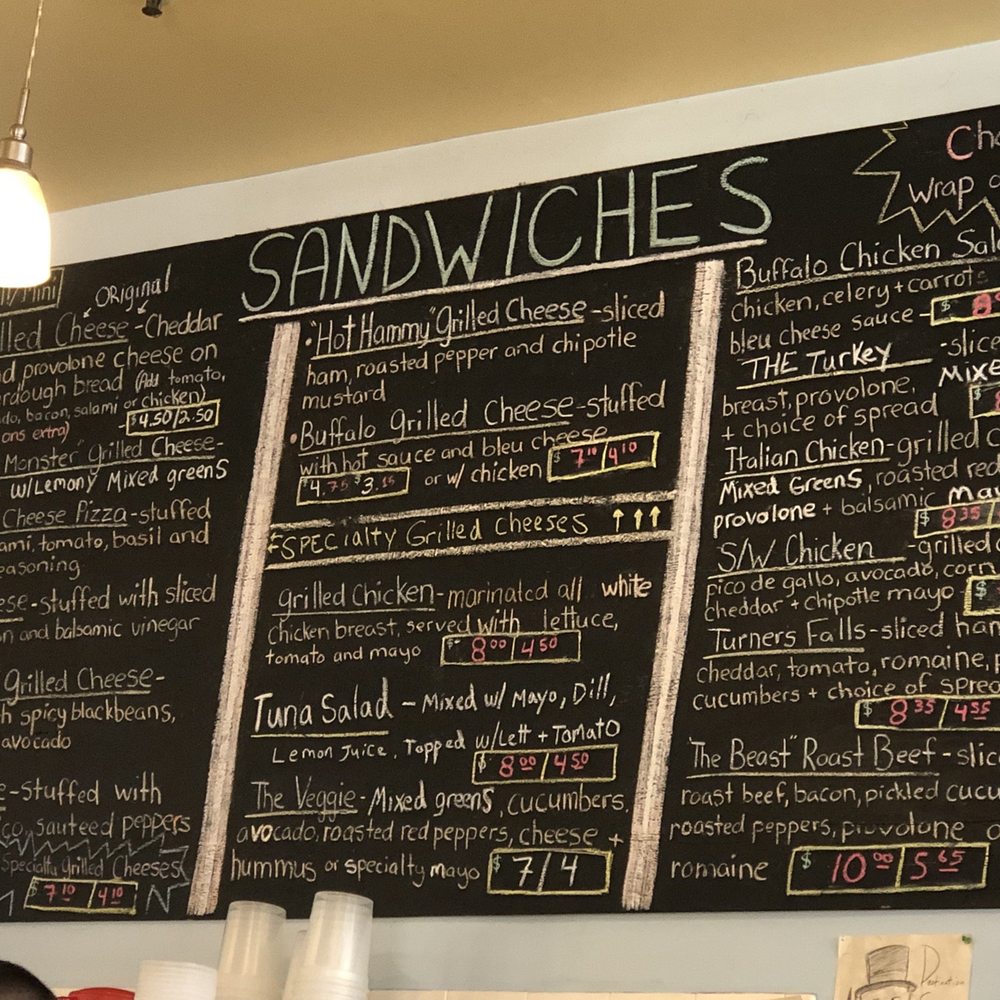 SANDWICHES
Original
Cheese - Cheddar
provolone cheese on
bread (Add tomato,
bacon, salami or chicken)
extra) - $4.50/2.50
Monster" Grilled Cheese-
w/Lemony Mixed greens
Cheese Pizza - stuffed
tomato, basil and
-stuffed with sliced
and balsamic vinegar
Grilled Cheese-
spicy blackbeans,
avocado
-stuffed with
sauteed peppers
Specialty Grilled Cheeses
$7.10/4.10
• "Hot Hammy" Grilled Cheese - sliced
ham, roasted pepper and chipotle
mustard
• Buffalo Grilled Cheese - stuffed
with hot sauce and bleu cheese
or w/ chicken $7.10/4.10
Specialty Grilled Cheeses ↑↑↑
grilled Chicken - marinated all white
chicken breast, served with lettuce,
tomato and mayo $8.00/4.50
Tuna Salad - Mixed w/ Mayo, Dill,
Lemon Juice, Topped w/Lett + Tomato
$8.00/4.50
The Veggie - Mixed greens, cucumbers,
avocado, roasted red peppers, cheese +
hummus or specialty mayo $7/4
Wrap
Buffalo Chicken
chicken, celery + carrots
bleu cheese sauce - $
THE Turkey -
breast, provolone,
+ choice of spread
Italian Chicken - grilled
Mixed Greens, roasted red
provolone + balsamic
$8.35
S/W Chicken - grilled
pico de gallo, avocado, corn
cheddar + chipotle mayo $
Turners Falls - sliced ham
cheddar, tomato, romaine,
cucumbers + choice of spread
$8.35/4.55
"The Beast" Roast Beef -
roast beef, bacon, pickled
roasted peppers, provolone
romaine $10.00/5.65